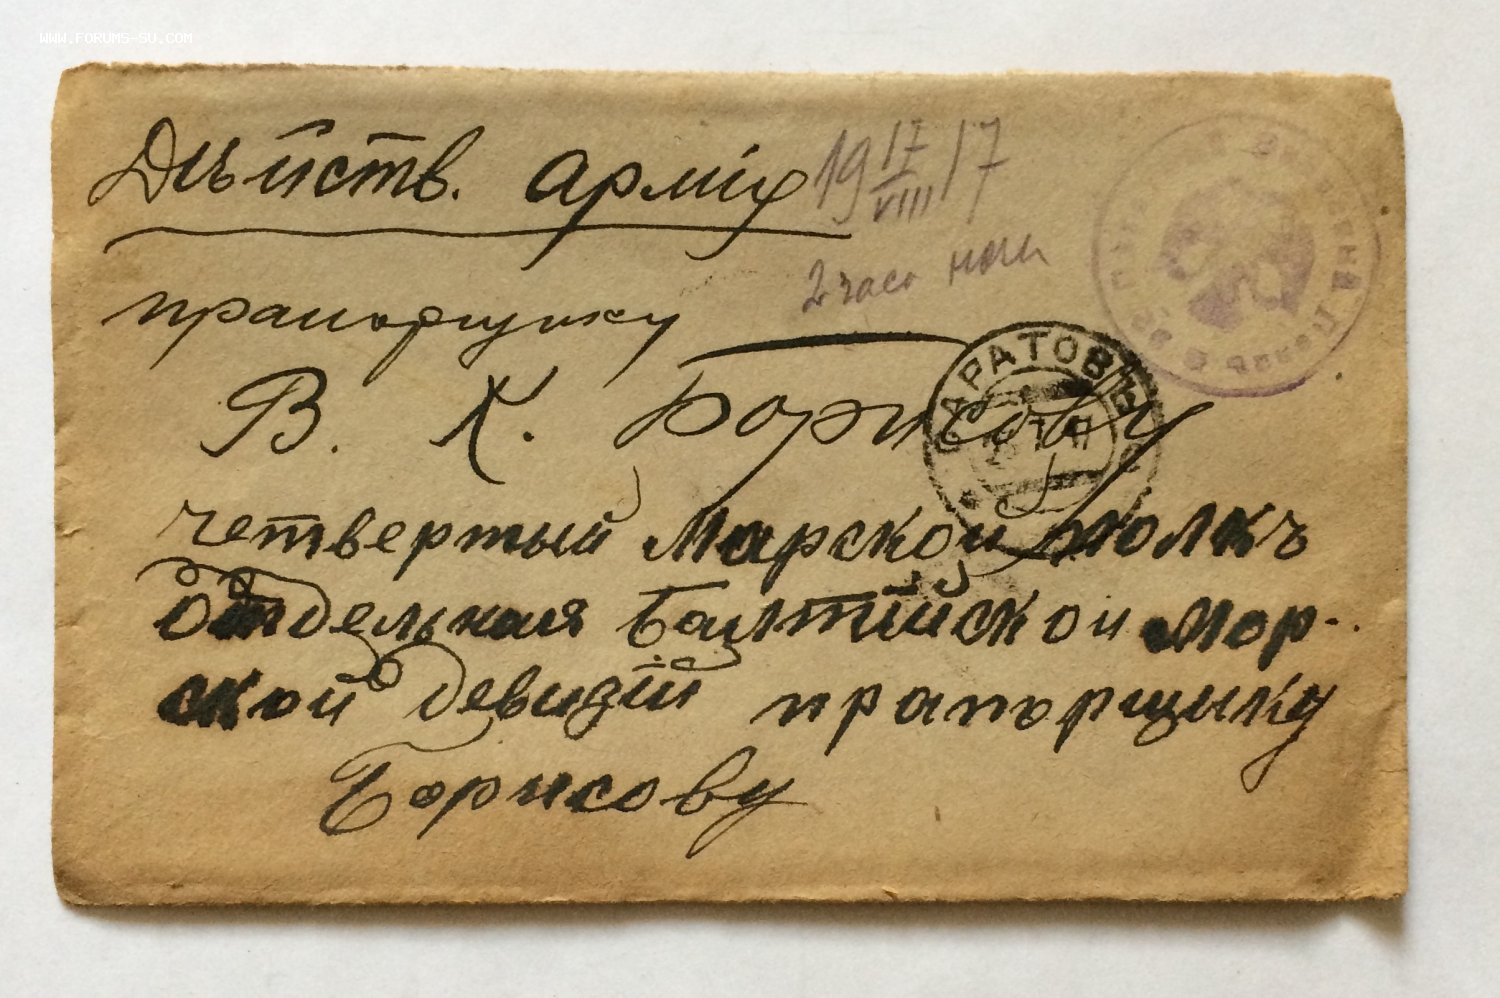 WWW.FORUMS-SU.COM
Дѣйств. армія
19 IX/VIII 17
2 часа ночи
прапорщику
В. К. Борисову
САРАТОВЪ
четвертый Марской полкъ
Отдельная Балтійской Мор-
ской девизіи прапорщику
Борисову